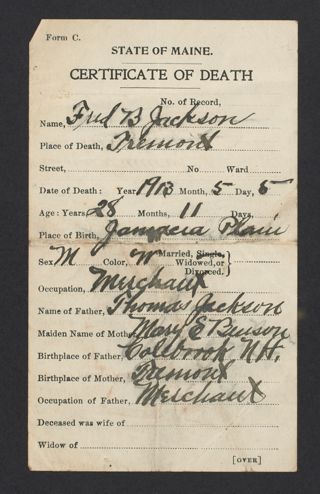 Form C.
STATE OF MAINE.
CERTIFICATE OF DEATH
No. of Record,
Name, Fred B Jackson
Place of Death, Tremont
Street, No Ward
Date of Death: Year 1913 Month, 5 Day, 5
Age: Years, 28 Months, 11 Days,
Place of Birth, Jamacia Plain
Sex M Color, W Married, Single, Widowed, or Divorced.
Occupation, Merchant
Name of Father, Thomas Jackson
Maiden Name of Mother, Mary E Benson
Birthplace of Father, Colbrook, N.H.
Birthplace of Mother, Tremont
Occupation of Father, Merchant
Deceased was wife of
Widow of
[OVER]